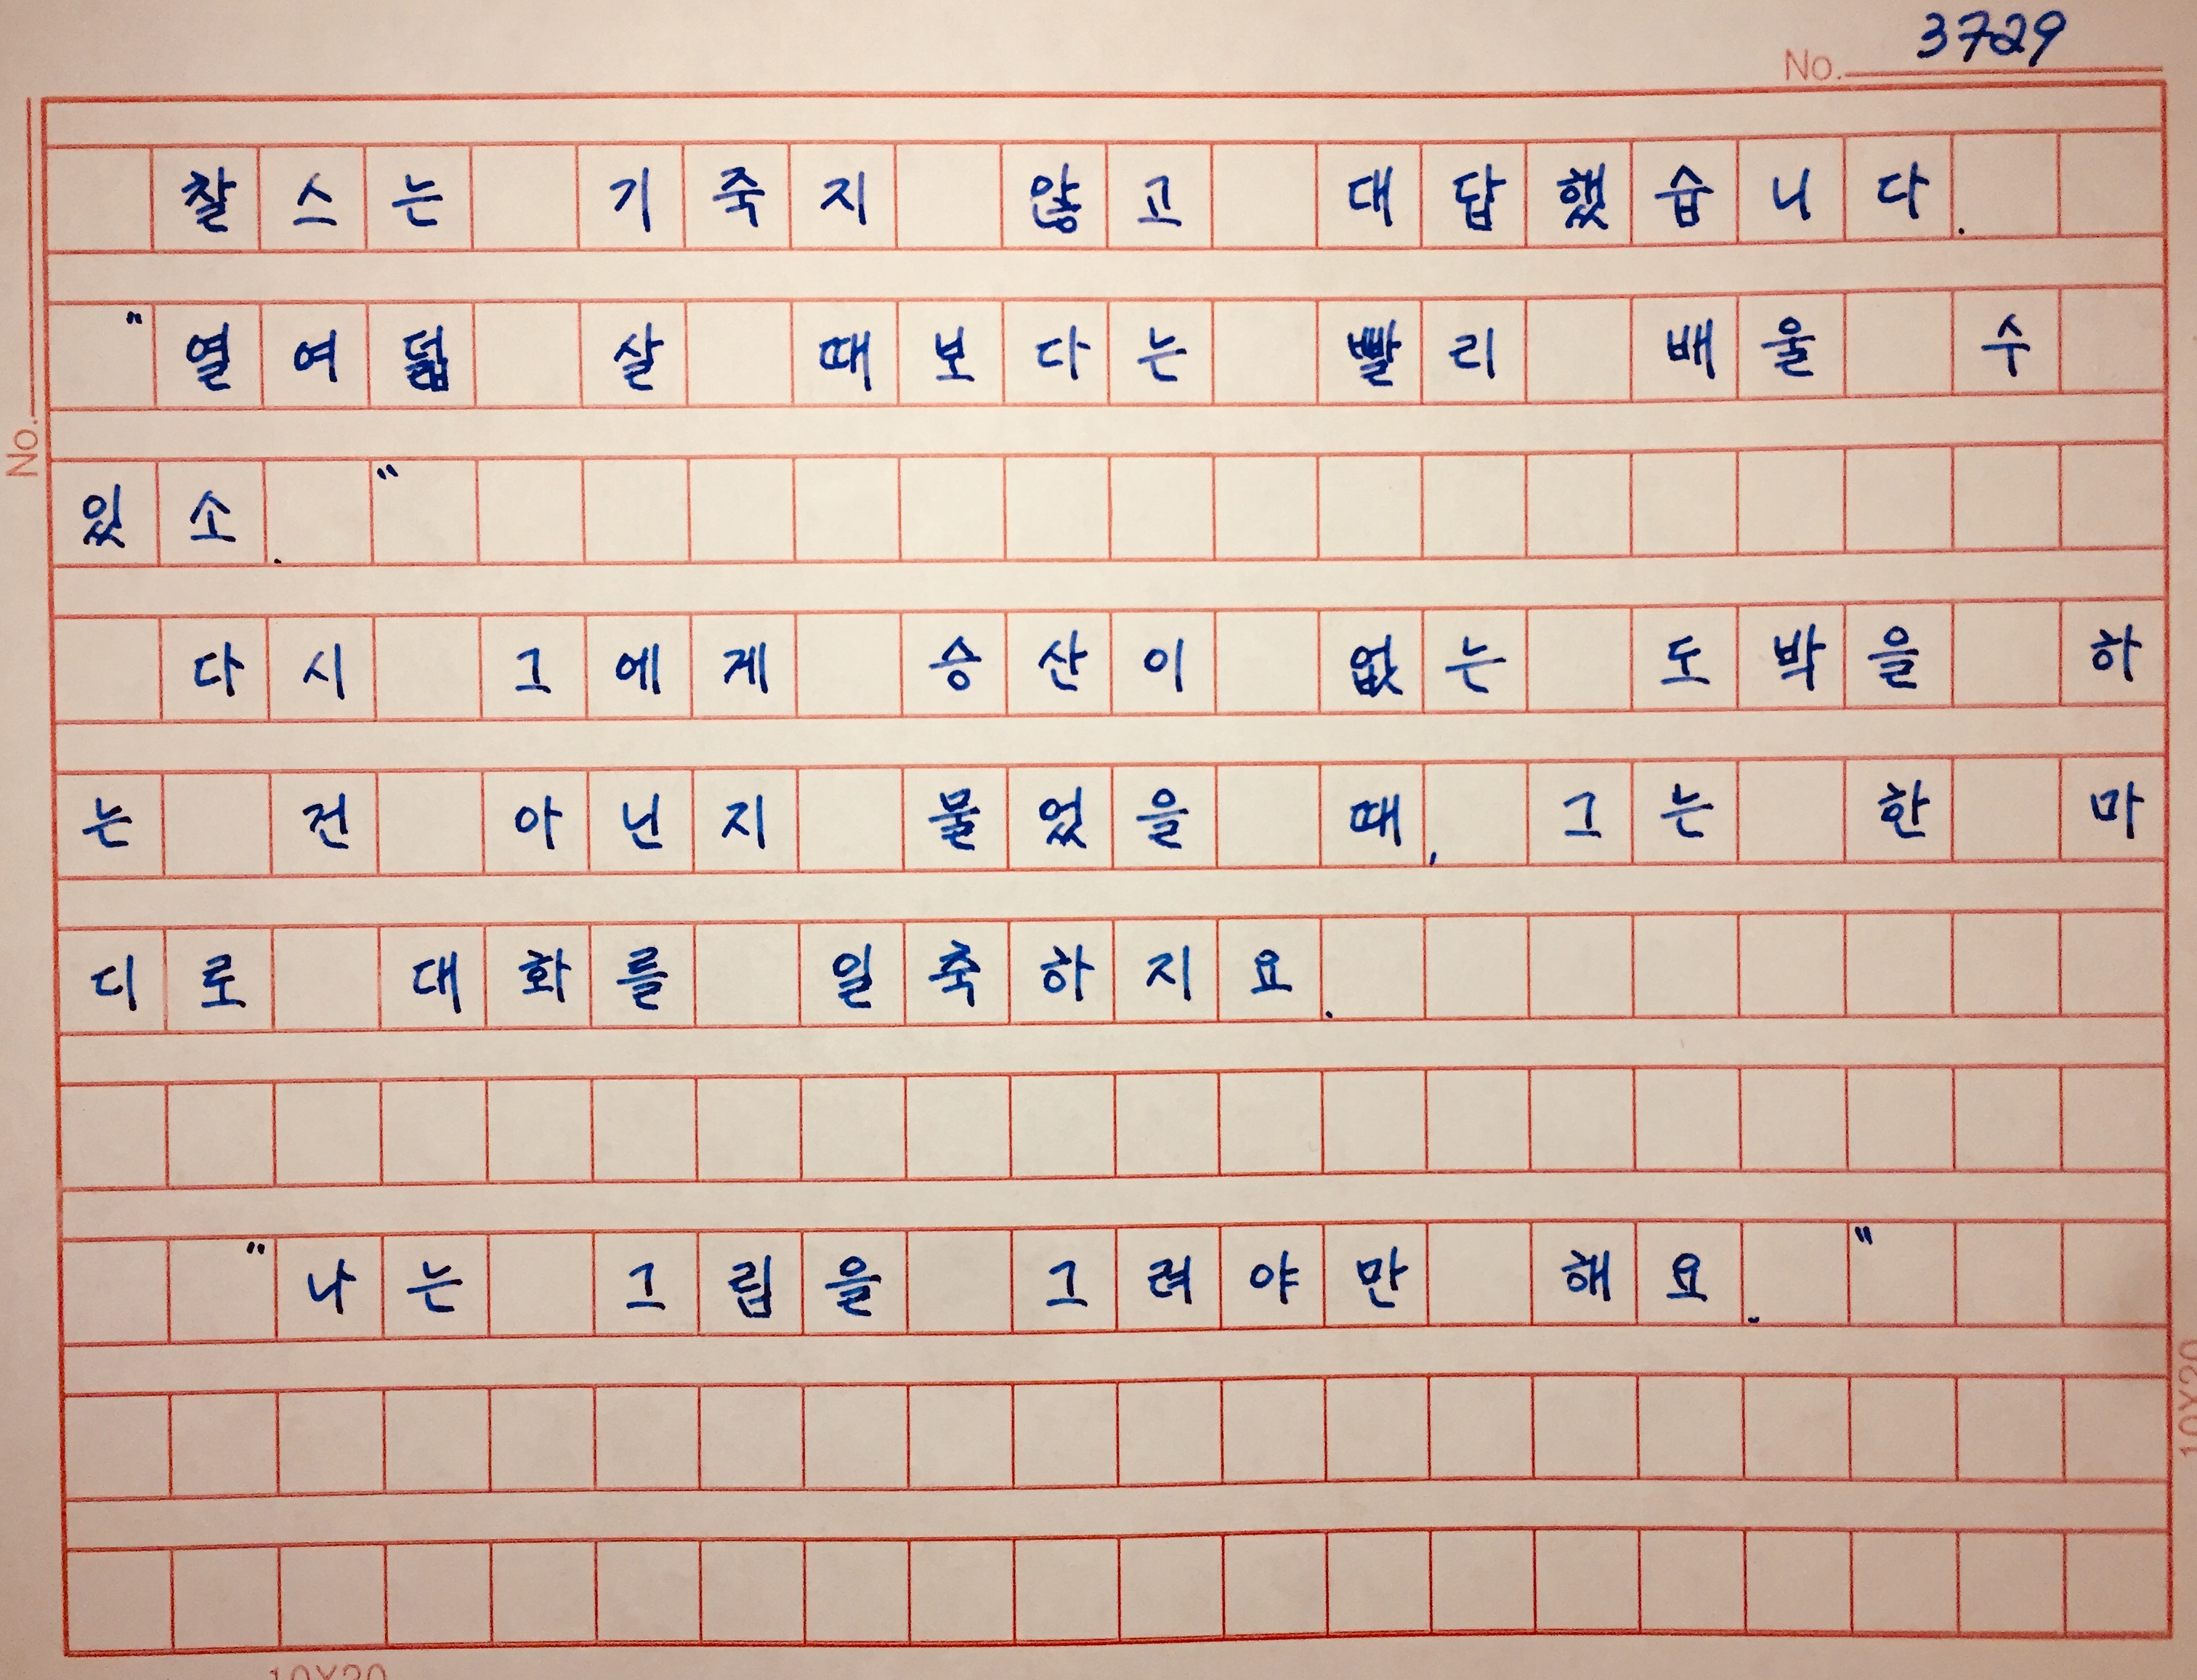 No. 3729
찰스는 기죽지 않고 대답했습니다.
"열여덟 살 때보다는 빨리 배울 수
있소."
다시 그에게 승산이 없는 도박을 하
는 건 아닌지 물었을 때, 그는 한 마
디로 대화를 일축하지요.
"나는 그림을 그려야만 해요."
No.
10X20
10X20